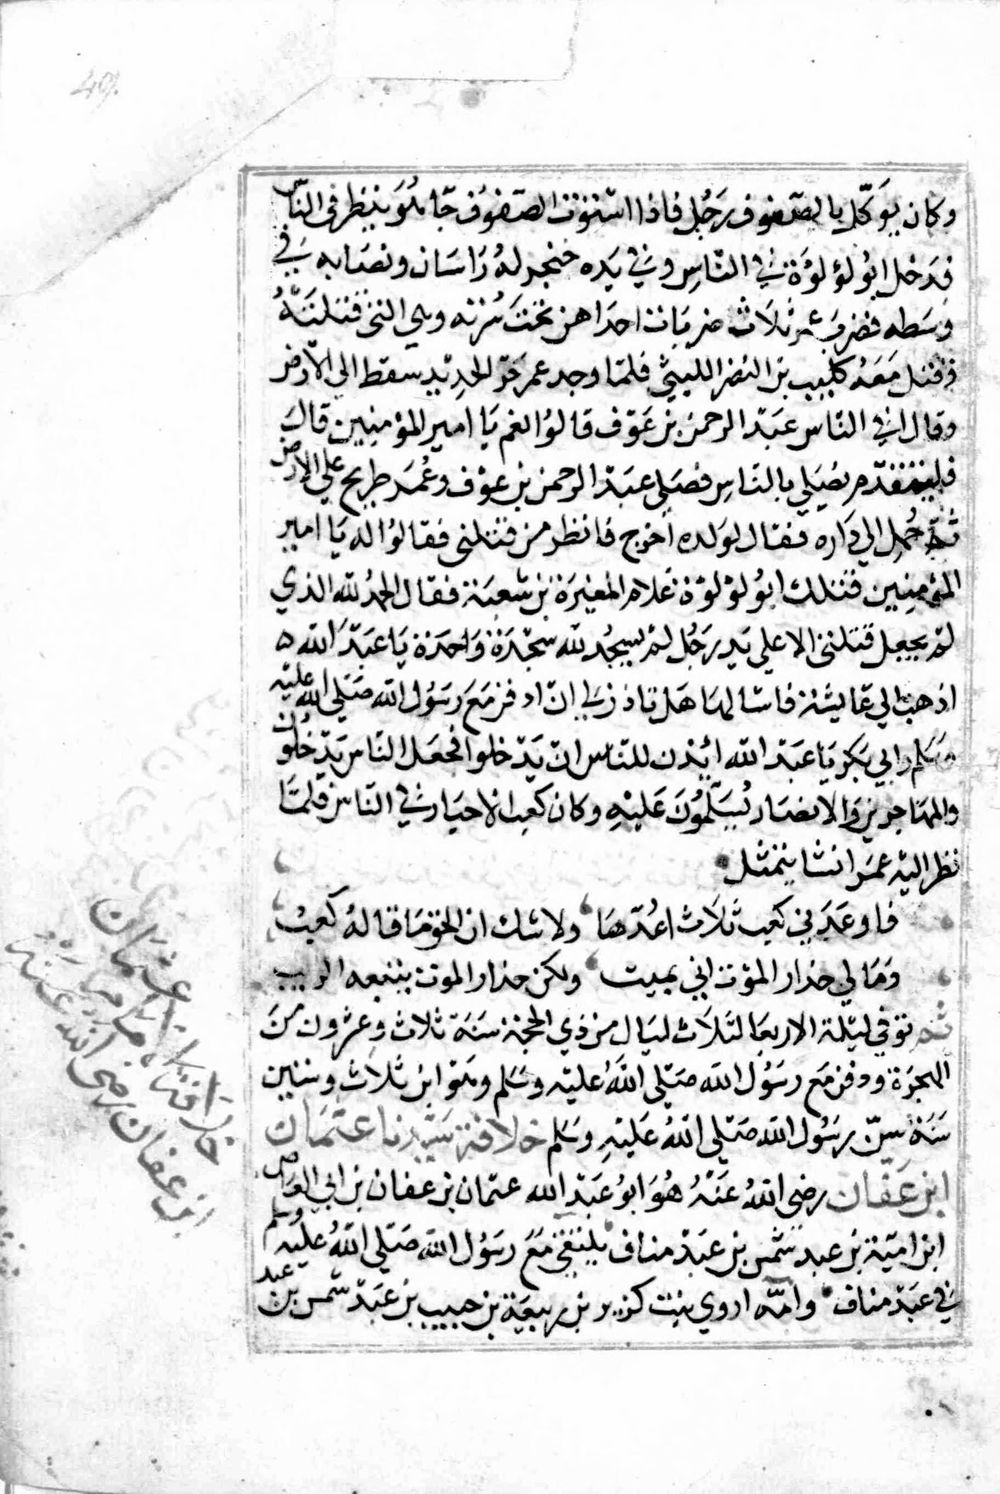 وكان يوكّل بالصفوف رجل فاذا استوت الصفوف جا هو ينظر في الناس
فدخل ابو لؤلؤة في الناس وفي يده خنجر له راسان ونصابه في
وسطه فضرب عمر ثلاث ضربات احداهن تحت سرته وهي التي قتلته
وقتل معه كليب بن النضر الليثي فلمّا وجد عمر حرّ الحديد سقط الي الارض
وقال افي الناس عبد الرحمن بن عوف قالوا نعم يا امير المؤمنين قال
فليتقدم يصلي بالناس فصلي عبد الرحمن بن عوف وعمر طريح علي الارض
ثم حمل الي داره فقال لولده اخرج فانظر من قتلني فقالوا له يا امير
المؤمنين قتلك ابو لؤلؤة غلام المغيرة بن شعبة فقال الحمد لله الذي
لم يجعل قتلني الا علي يد رجل لم يسجد لله سجدة واحدة يا عبد الله
اذهب الي عايشة فاسالها هل تاذن لي ان ادفن مع رسول الله صلي الله عليه
وسلم وابي بكر يا عبد الله ائذن للناس ان يدخلوا فجعل الناس يدخلون
والمهاجرين والانصار يسلمون عليه وكان كعب الاحبار في الناس فلمّا
نظر اليه عمر انشا يتمثل
فاوعدني كعب ثلاث اعدّها ولا شك ان الحق ما قاله كعب
وما لي حذار الموت اني لميت ولكن حذار الموت يتبعه
ثم توفي ليلة الاربعا لثلاث ليال من ذي الحجة سنة ثلاث وعشرون من
الهجرة ودفن مع رسول الله صلّي الله عليه وسلم وهو ابن ثلاث وستين
سنة سنّ رسول الله صلّي الله عليه وسلم خلافة سيّدنا عثمان
ابن عفّان رضي الله عنه هو ابو عبد الله عثمان بن عفان بن ابي العاص
ابن اميّة بن عبد شمس بن عبد مناف يلتقي مع رسول الله صلّي الله عليه وسلم
في عبد مناف وامّه اروي بنت كريز بن ربيعة بن حبيب بن عبد شمس بن عبد
خلافة سيدنا عثمان
ابن عفان رضي الله عنه